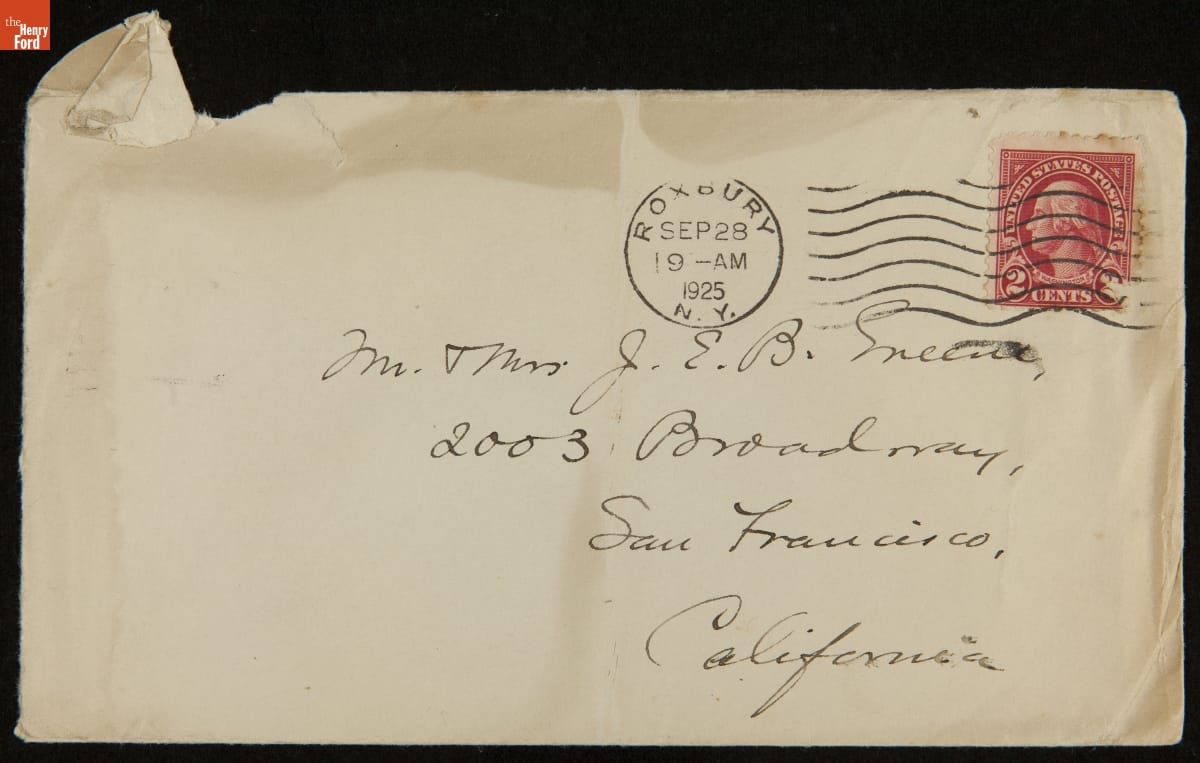 the
Henry
Ford
ROXBURY
SEP 28
9 - AM
1925
N. Y.
UNITED STATES POSTAGE
WASHINGTON
2 CENTS 2
Mr. & Mrs J. E. B. Greene,
2003 Broadway,
San Francisco,
California